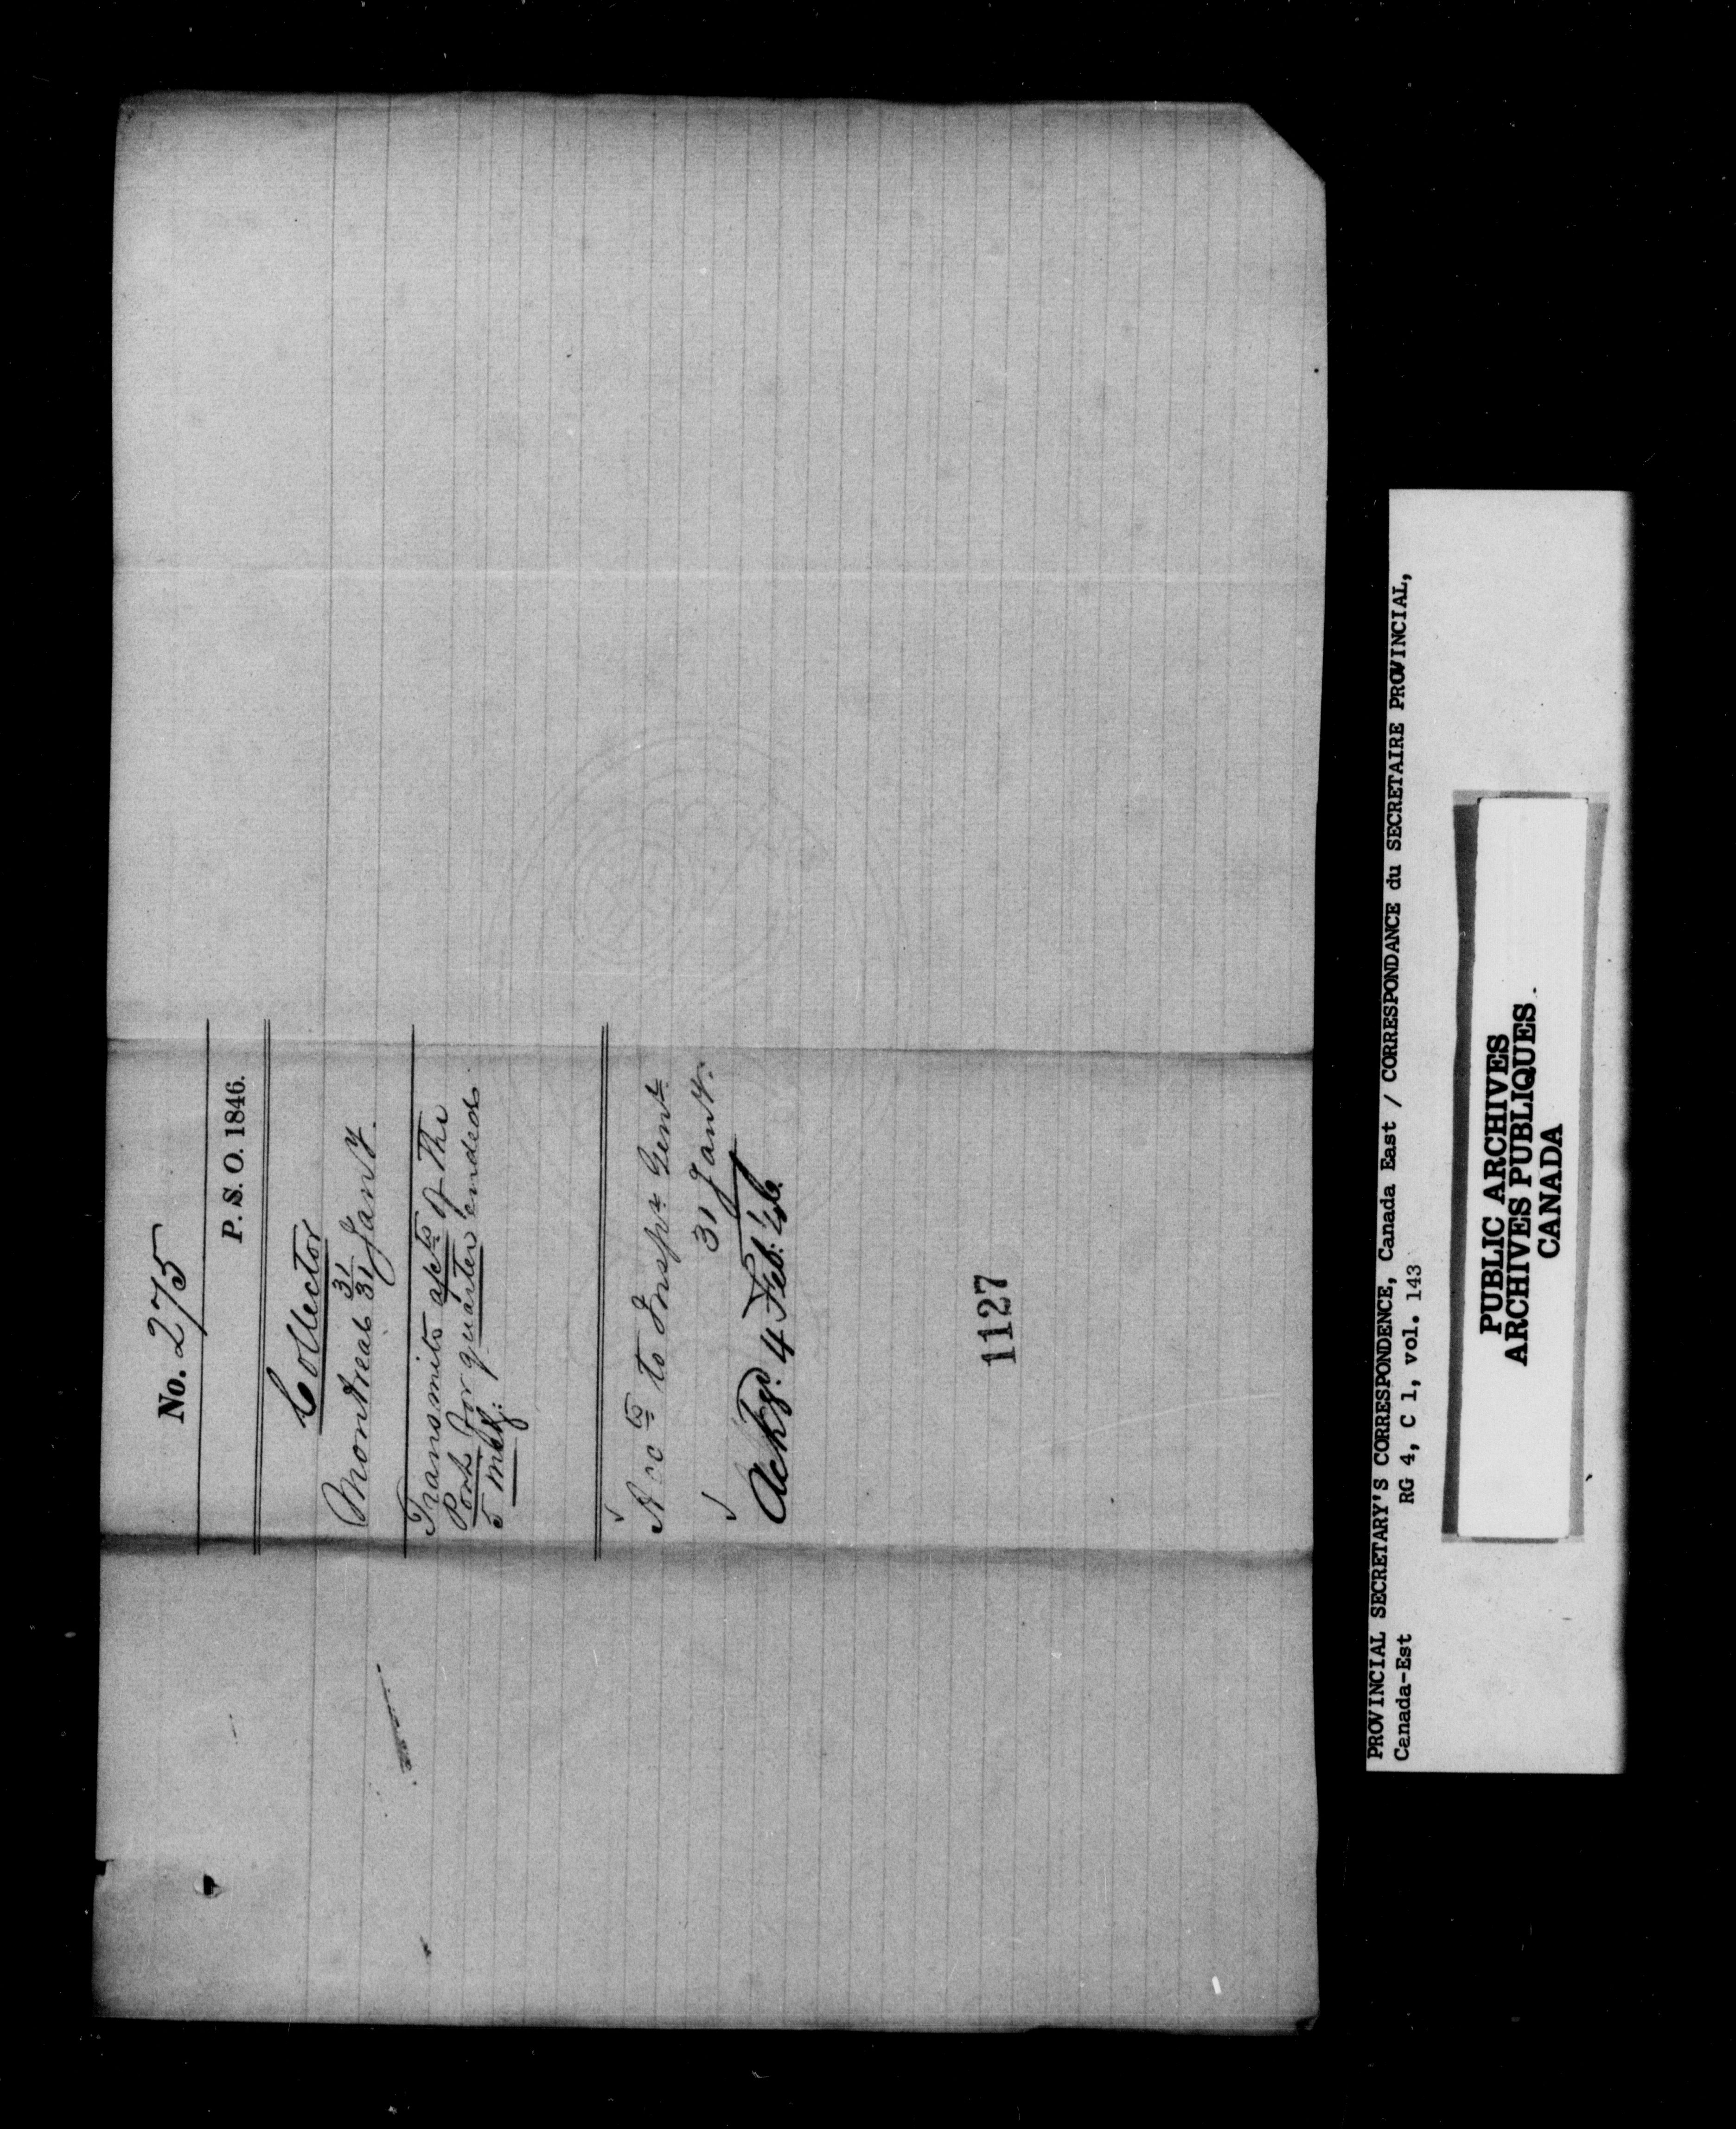 No. 275
P. S. O. 1846.
Collector
Montreal 31
31 Jany.
Transmits accts of the
Port for quarter ended
5 inst:
Accts to Inspr Genl
31 Jany.
Ackgd. 4 Feb: 46.
1127
PROVINCIAL SECRETARY'S CORRESPONDENCE, Canada East / CORRESPONDANCE du SECRETAIRE PROVINCIAL,
Canada-Est RG 4, C 1, vol. 143
PUBLIC ARCHIVES
ARCHIVES PUBLIQUES
CANADA